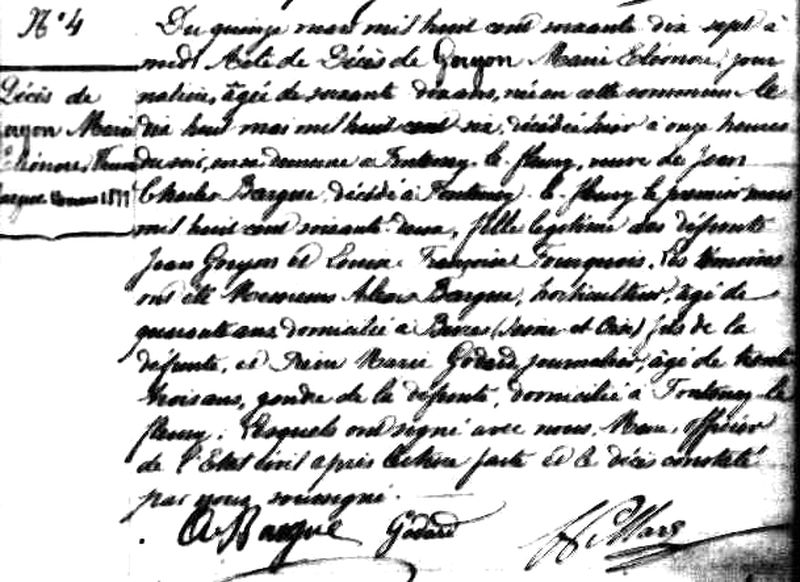 N° 4
Du quinze mars mil huit cent soixante dix sept à
midi Acte de Décès de Goryon Marie Eléonore, jour
nalière, âgée de soixante dix ans, née en cette commune le
dix huit mars mil huit cent six, décédée hier à onze heures
du soir, en sa demeure à Fontenay-le-fleury, veuve de Jean
Charles Bargue, décédé à Fontenay-le-fleury le premier mars
mil huit cent soixante-deux, fille légitime des défunts
Jean Goryon et Louise Françoise Fourquois. Les témoins
ont été Messieurs Bargue, horticulteur, âgé de
quarante ans domicilié à (Seine et Oise) fils de la
défunte, et Marie Godard journalier, âgé de trente
trois ans, gendre de la défunte, domicilié à Fontenay-le
fleury. Lesquels ont signé avec nous, Maire, officier
de l'Etat civil après lecture faite et le décès constaté
par nous soussigné.
Décès de
Goryon Marie
Eléonore,
Bargue
A Bargue Godard